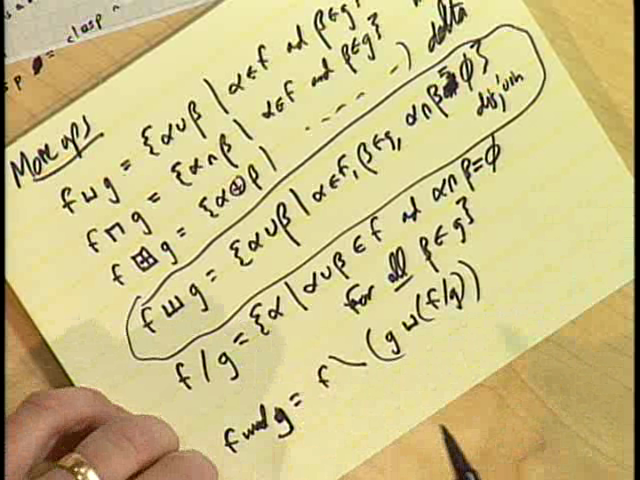 clasp
More ops
f ⊔ g = {α∪β | α∈f and β∈g}
f ⊓ g = {α∩β | α∈f and β∈g}
f ⊞ g = {α⊕β | - - - - - } delta
f ш g = {α∪β | α∈f, β∈g, α∩β=ϕ} disj join
f / g = {α | α∪β ∈ f and α∩β=ϕ
for all β∈g}
f mod g = f \ (g ⊔ (f/g))